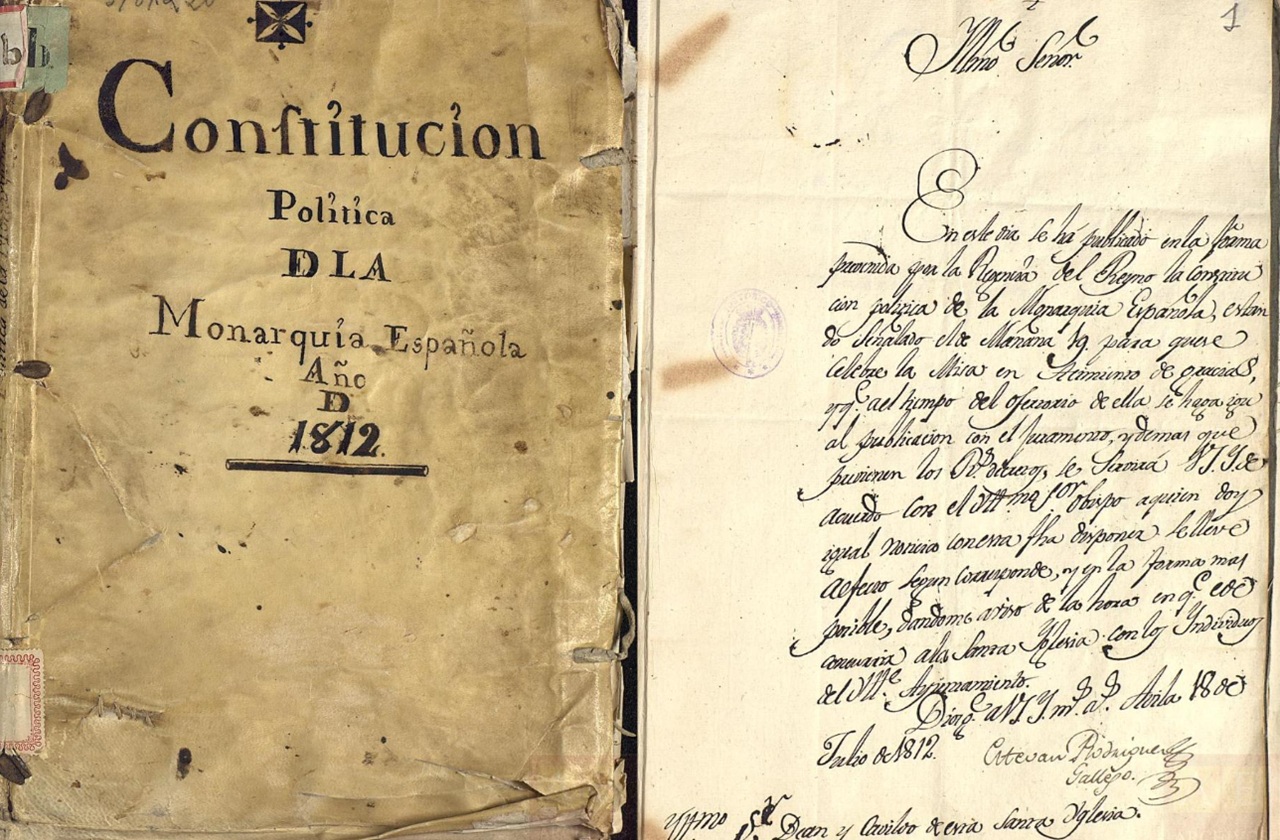 bb
Conſtitucion
Politica
DLA
Monarquia Española
Año
D
1812.
1
Yllmõ Señor.
En este dia se há publicado en la forma
prevenida por la Regencia del Reyno la constitu
cion politica de la Monarquia Española, estan
do Señalado el de Mañana 19. para que se
Celebre la Misa en Acimiento de gracias,
y q.e al tiempo del ofertorio de ella se haga igu
al publicacion con el Juramento, y demas que
previenen los R.s decretos, se Servirá V.S.Y. de
acuerdo con el Yllmo Sor Obispo a quien doy
igual noticia con esta fha disponer se lleve
a efecto segun corresponde, y en la forma mas
posible, dandome aviso de la hora en q.e debe
concurrir a la Santa Yglesia con los Individuos
del Yll.e Ayuntamiento.
Dios g.e a V.S.Y. m.s a.s Avila 18 de
Julio de 1812.
Estevan Rodriguez
Gallego.
Yllmo S.or Dean y Cavildo de esta Santa Yglesia.